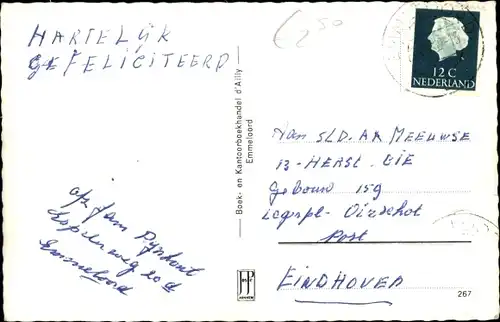 HARTELIJK
GEFELICITEERD
250
12 C
NEDERLAND
Boek- en Kantoorboekhandel d'Ailly
Emmeloord
Aan SLD. AA MEEUWSE
13- HERST. CIE
Gebouw 159
Legerpl- Oirschot
Post
EINDHOVEN
afz Jan
Espelerweg 20 d
Emmeloord
267